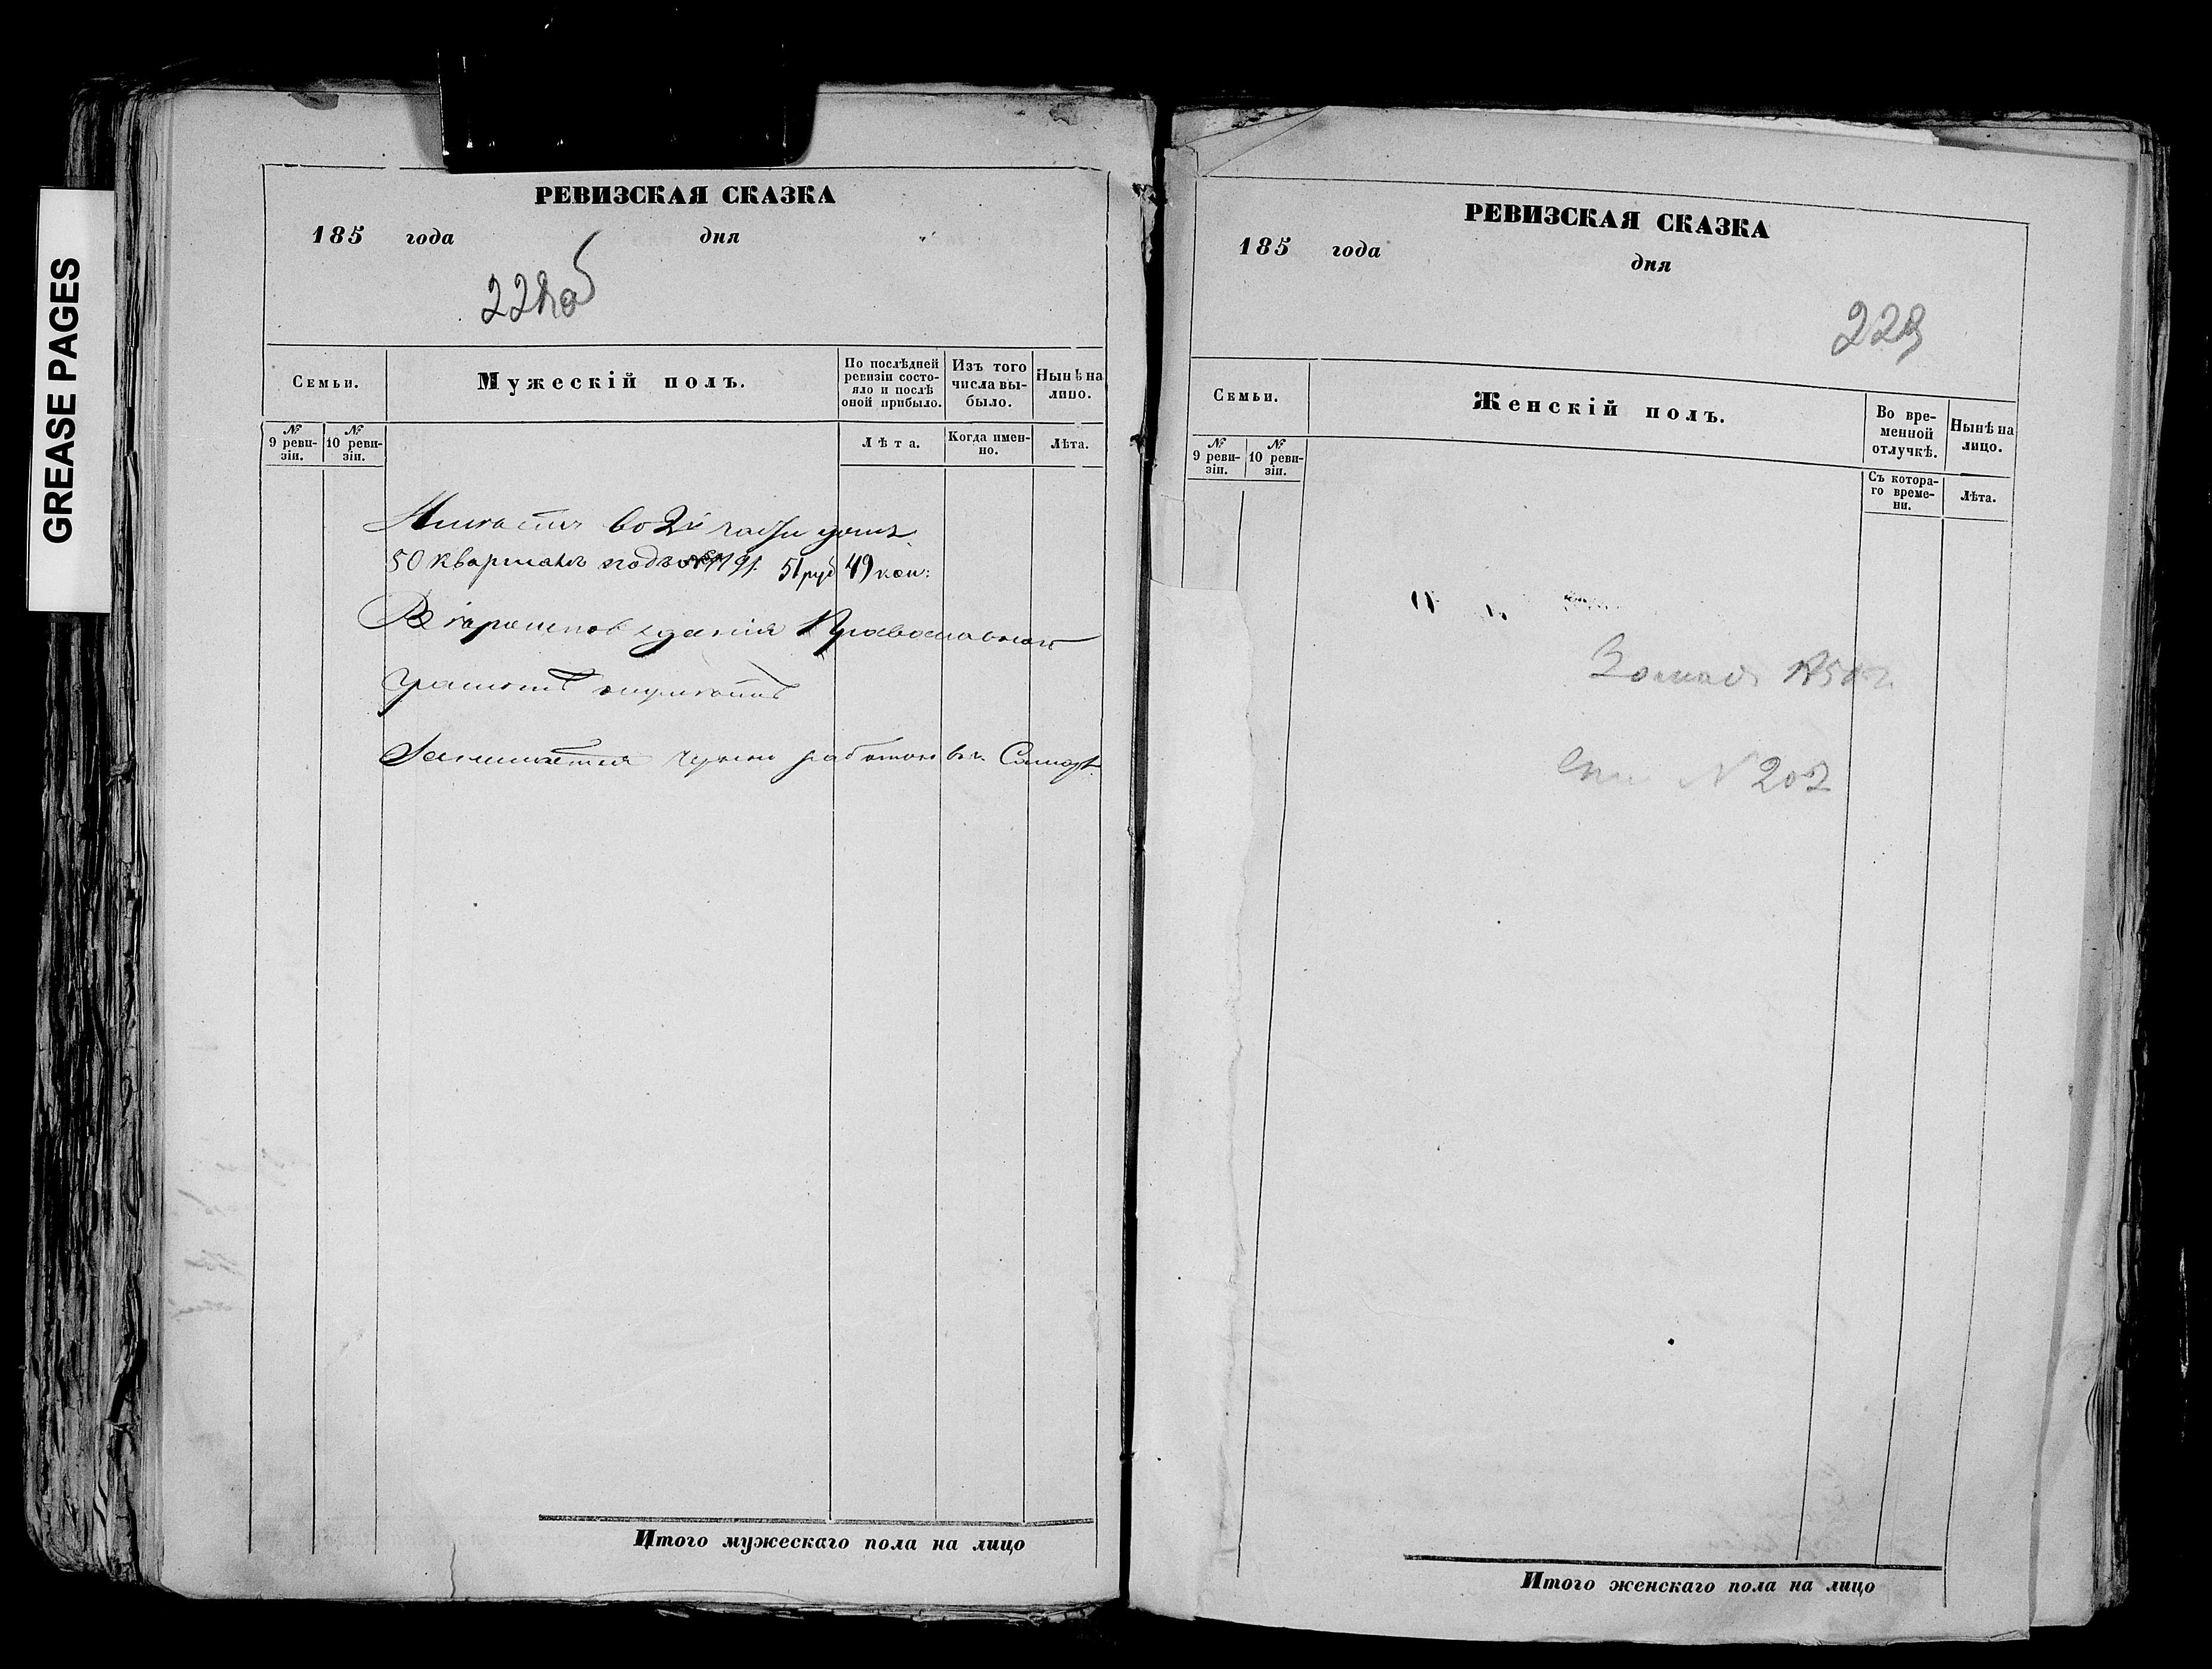 GREASE PAGES
РЕВИЗСКАЯ СКАЗКА
185 года дня
Семьи.
Мужескій полъ.
По послѣдней ревизіи состояло и послѣ оной прибыло.
Изъ того числа выбыло.
Нынѣ на лицо.
№ 9 ревизіи.
№ 10 ревизіи.
Лѣта.
Когда именно.
Лѣта.
во 2й части
50 кварталъ подъ 51 руб 49 коп:
Вѣроисповѣданія Православнаго
Занимается работою въ г. Самарѣ
Итого мужескаго пола на лицо
РЕВИЗСКАЯ СКАЗКА
185 года дня
229
Семьи.
Женскій полъ.
Во временной отлучкѣ.
Нынѣ на лицо.
№ 9 ревизіи.
№ 10 ревизіи.
Съ котораго времени.
Лѣта.
N 202
Итого женскаго пола на лицо